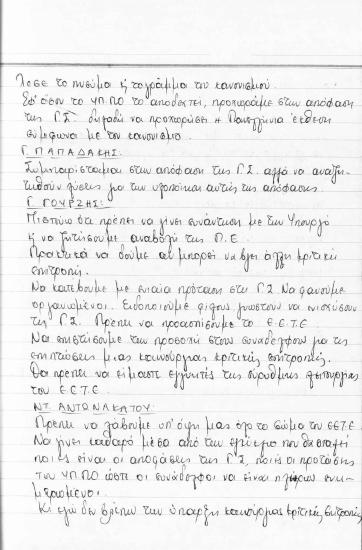 λόσε το πνεύμα ή το γράμμα του κανονισμού.
Εφ' όσον το ΥΠΠΟ το αποδέχτει, προχωράμε στην απόφαση
της Γ.Σ. δηλαδή να προχωρήσει η Πανελλήνια έκθεση
σύμφωνα με τον κανονισμό.
Γ. ΠΑΠΑΔΑΚΗΣ:
Συμπαρίσταμαι στην απόφαση της Γ.Σ. αλλά να αναζη-
τηθούν λύσεις για την υλοποίηση αυτής της απόφασης.
Γ. ΓΟΥΡΖΗΣ:
Πιστεύω ότι πρέπει να γίνει συνάντηση με τον Υπουργό
ή να ζητήσουμε αναβολή της Π.Ε.
Πρακτικά να δούμε αν μπορεί να βγει άλλη κριτική
επιτροπή.
Να κατέβουμε με ενιαία πρόταση στη Γ.Σ. Να φανούμε
οργανωμένοι. Ειδοποιούμε φίλους, γνωστούς να ενισχύσουν
τη Γ.Σ. Πρέπει να προασπίσουμε το Ε.Ε.Τ.Ε.
Να επιστήσουμε την προσοχή στους συναδέλφους για τις
επιπτώσεις μιας καινούργιας κριτικής επιτροπής.
Θα πρέπει να είμαστε εγγυητές της εύρυθμης λειτουργίας
του ΕΕΤΕ.
ΝΤ. ΑΝΤΩΝΑΚΑΤΟΥ:
Πρέπει να λάβουμε υπ' όψη μας όλο το σώμα του ΕΕΤΕ
Να γίνει καθαρό μέσα από την εγκύκλιο που θα σταλεί
ποιες είναι οι αποφάσεις της Γ.Σ, ποιές οι προτάσεις
του ΥΠΠΟ ώστε οι συνάδελφοι να είναι πλήρως ενη-
μερωμένοι.
Κι εγώ δεν βλέπω την ύπαρξη καινούργιας κριτικής επιτροπής